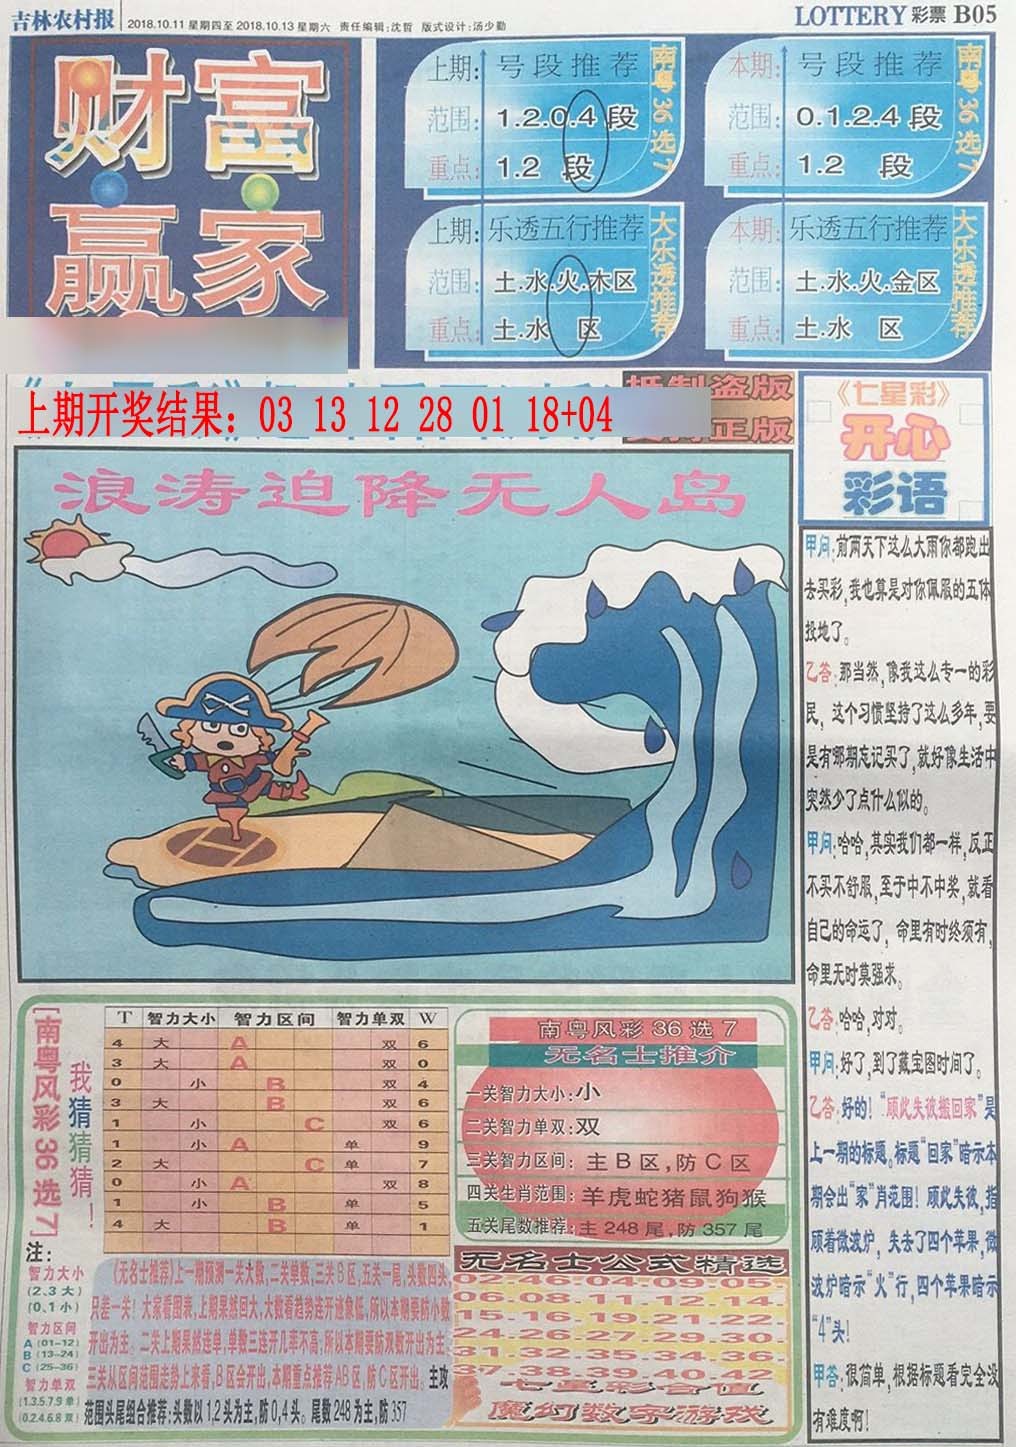 吉林农村报 2018.10.11 星期四至 2018.10.13 星期六 责任编辑:沈哲 版式设计:汤少勤
LOTTERY 彩票 B05
财富
赢家
上期: 号段推荐
范围: 1.2.0.4 段
重点: 1.2 段
南粤36选7
本期: 号段推荐
范围: 0.1.2.4 段
重点: 1.2 段
南粤36选7
上期: 乐透五行推荐
范围: 土.水.火.木区
重点: 土.水 区
大乐透推荐
本期: 乐透五行推荐
范围: 土.水.火.金区
重点: 土.水 区
大乐透推荐
上期开奖结果：03 13 12 28 01 18+04
盗版
正版
浪涛迫降无人岛
《七星彩》
开心
彩语
甲问:前两天下这么大雨你都跑出
去买彩,我也算是对你佩服的五体
投地了。
乙答:那当然,像我这么专一的彩
民，这个习惯坚持了这么多年,要
是有哪期忘记买了,就好像生活中
突然少了点什么似的。
甲问:哈哈,其实我们都一样,反正
不买不舒服,至于中不中奖,就看
自己的命运了，命里有时终须有,
命里无时莫强求。
乙答:哈哈,对对。
甲问:好了,到了藏宝图时间了。
乙答:好的！“顾此失彼搬回家”是
上一期的标题。标题“回家”暗示本
期会出“家”肖范围！顾此失彼,指
顾着微波炉，失去了四个苹果,微
波炉暗示“火”行,四个苹果暗示
“4”头!
甲答:很简单,根据标题看完全没
有难度啊!
[南粤风彩36选7]
我猜猜猜！
T 智力大小 智力区间 智力单双 W
4 大 A 双 6
3 大 A 双 0
0 小 B 双 4
3 大 B 双 6
1 小 C 双 6
1 小 A 单 9
2 大 C 单 7
0 小 A 双 8
1 小 B 单 5
4 大 B 单 1
注:
智力大小
(2、3大)
(0、1小)
智力区间
A (01-12)
B (13-24)
C (25-36)
智力单双
(1.3.5.7.9 单)
(0.2.4.6.8 双)
(无名士推荐)上一期预测一关大数,二关单数,三关B区,五关一尾,头数四头,
只差一关！大家看图表,上期果然回大,大数看趋势连开迹象低,所以本期要防小数
开出为主。二关上期果然连单,单数三连开几率不高;所以本期要防双数开出为主。
三关从区间范围走势上来看,B区会开出,本期重点推荐AB区,防C区开出。主攻
范围头尾组合推荐:头数以1,2头为主,防0,4头。尾数248为主,防357
南粤风彩36选7
无名士推介
一关智力大小:小
二关智力单双:双
三关智力区间：主B区,防C区
四关生肖范围：羊虎蛇猪鼠狗猴
五关尾数推荐:主248尾,防357尾
无名士公式精选
02-46-04-09-05-
06-08-11-12-14-
15-16-19-21-22-
24-26-27-29-30-
31-32-35-34-36-
37-38-39-40-42
七星彩合值
魔幻数字游戏